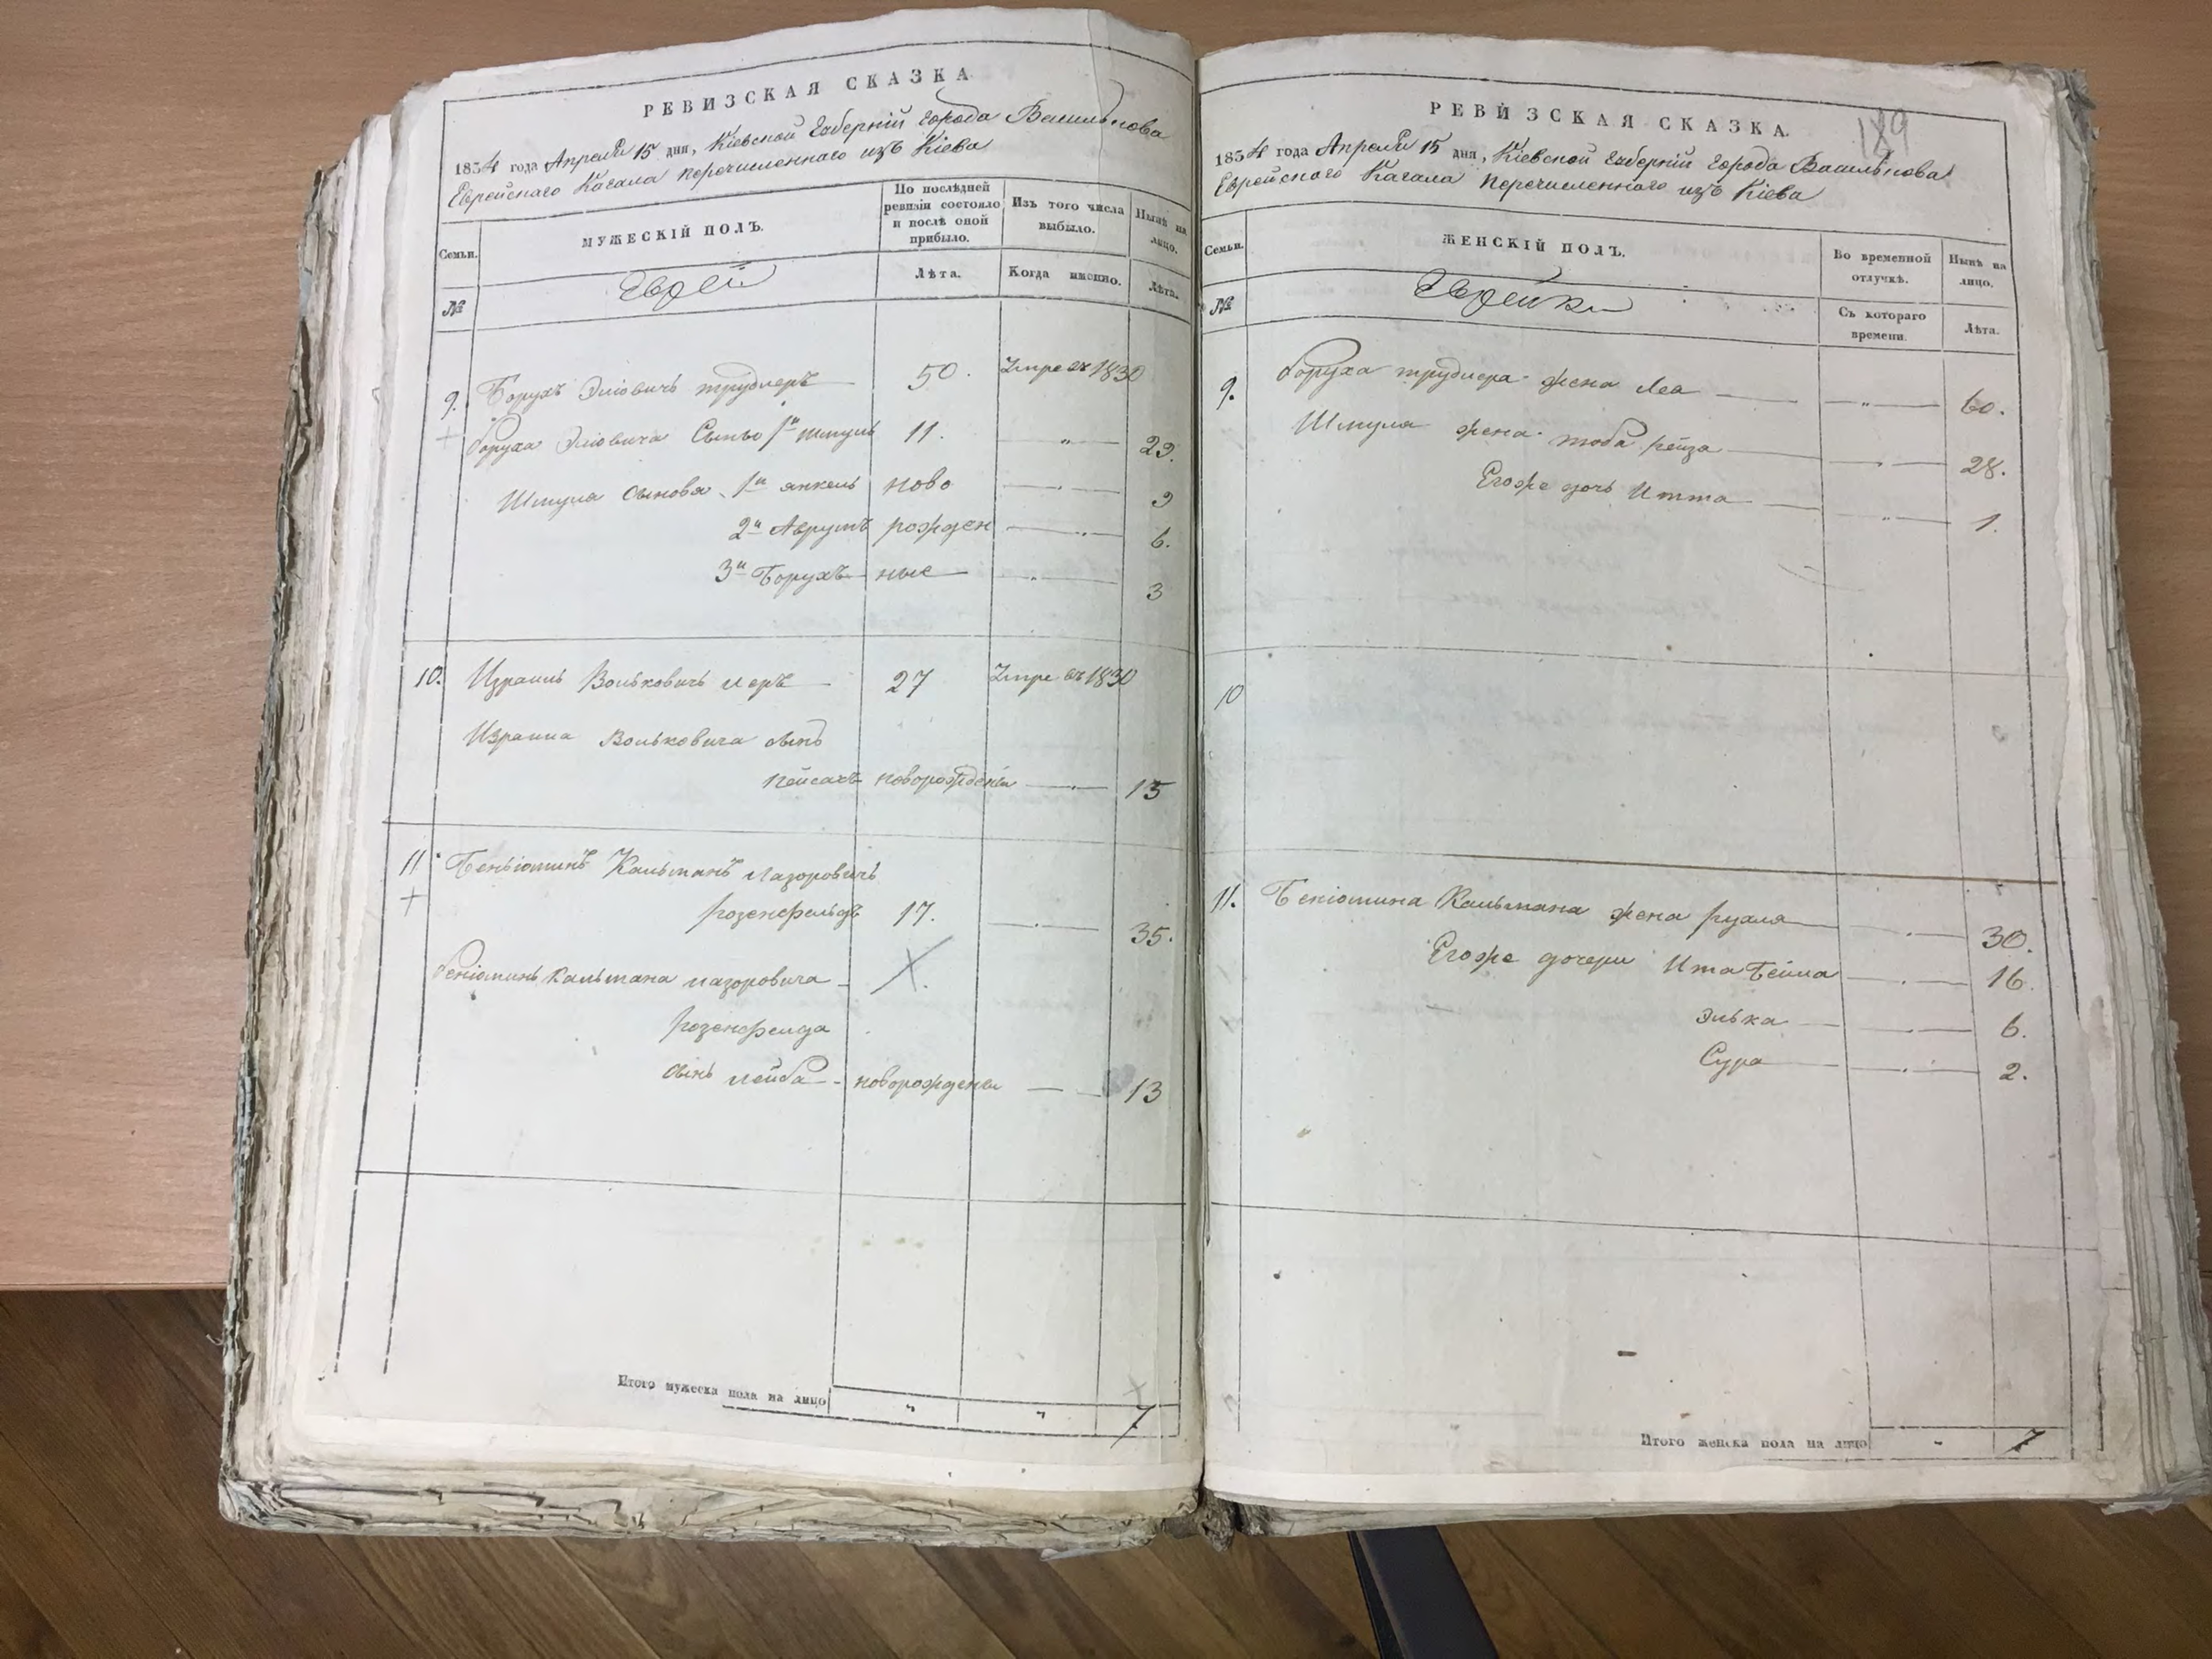 РЕВИЗСКАЯ СКАЗКА
1854 года Апреля 15 дня, Кіевской Губерніи Города Василькова
Еврейскаго Кагала перечисленнаго изъ Кіева
Семьи.
МУЖЕСКІЙ ПОЛЪ.
По послѣдней ревизіи состояло и послѣ оной прибыло.
Изъ того числа выбыло.
Нынѣ на лицо.
№
Евреи
Лѣта.
Когда именно.
Лѣта.
9. Борухъ Эліовичъ 50. Умре въ 1830
Боруха Эліовича Сынъ 1й Шмуль 11. „ 29.
Шмуля сыновя 1й янкель ново „ 9
2й Аврумъ рожден „ 6.
3й Борухъ ные „ 3
10. Израиль Вольковичъ леръ 27 Умре въ 1830
Израиля Вольковича сынъ
пейсахъ новорожденый „ 15
11 Беньіоминъ Кальманъ лазоровичъ
розенфельдъ 17. „ 35.
Беніоминъ Кальмана лазоровича
розенфельда
сынъ лейба новорожденый 13
Итого мужеска пола на лицо „ „ 7
РЕВИЗСКАЯ СКАЗКА.
189
1854 года Апреля 15 дня, Кіевской Губерніи Города Василькова
Еврейскаго Кагала перечисленнаго изъ Кіева
Семьи.
ЖЕНСКІЙ ПОЛЪ.
Во временной отлучкѣ.
Нынѣ на лицо.
№
Еврейки
Съ котораго времени.
Лѣта.
9. Боруха жена Леа „ 60.
Шмуля жена тоба рейза „ 28.
Егоже дочь Итта „ 1.
10
11. Беніомина Кальмана жена рухля „ 30.
Егоже дочери Ита Бейла „ 16.
Элька „ 6.
Сура „ 2.
Итого женска пола на лицо „ 7